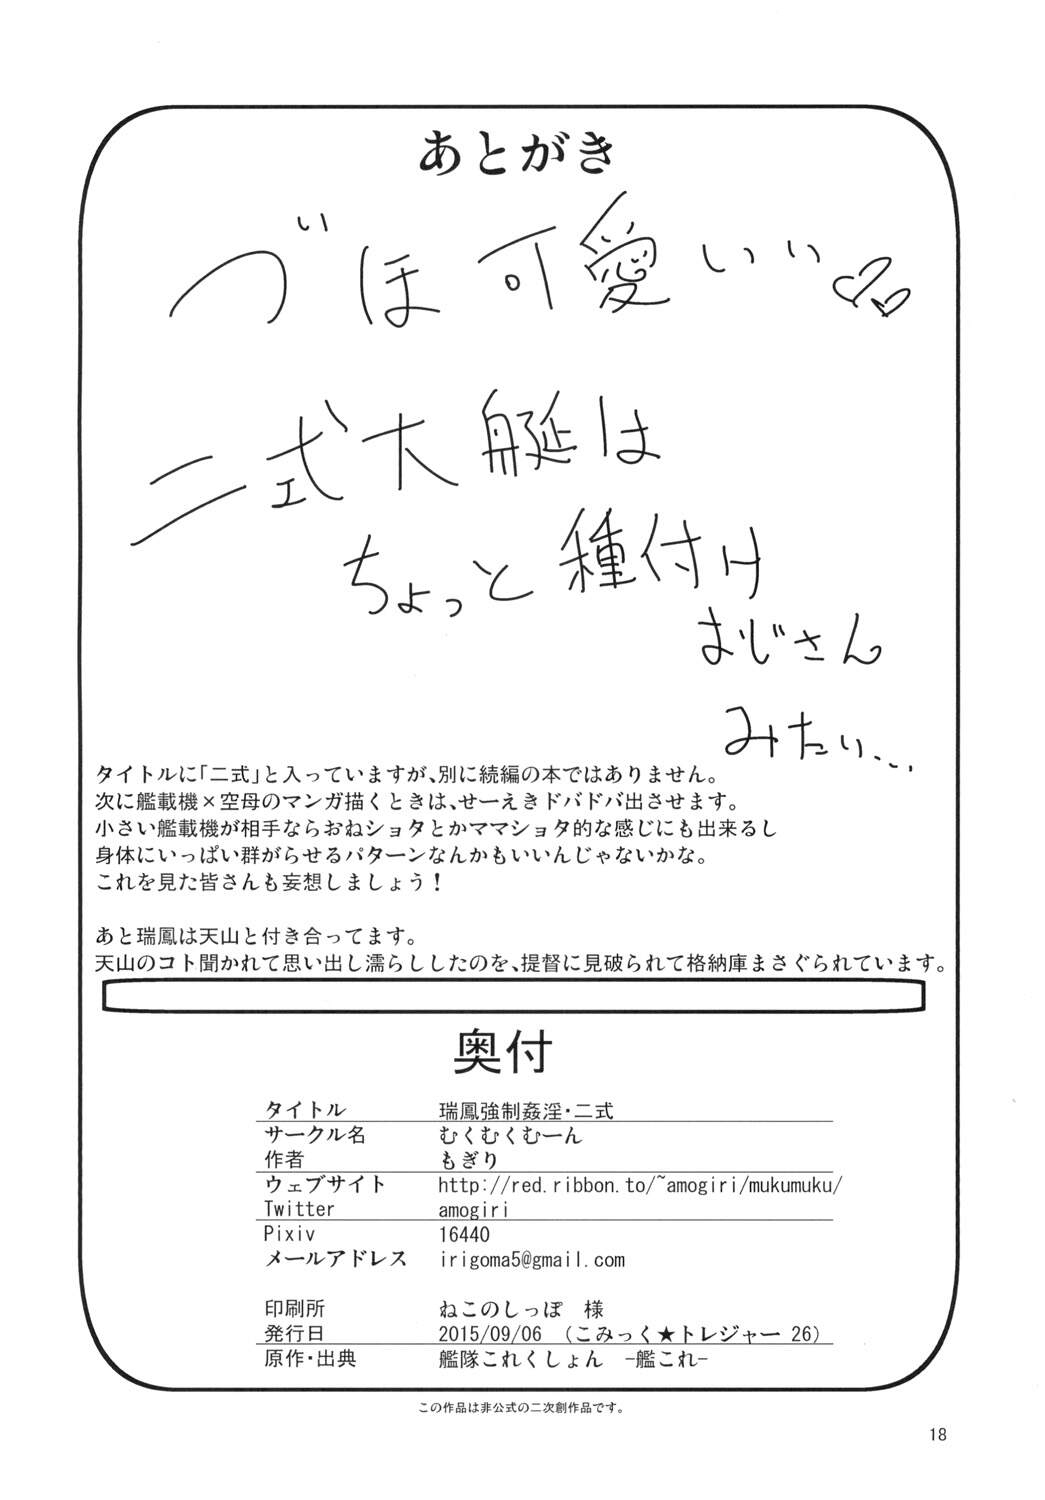 あとがき
づほ可愛いい
二式大艇は
ちょっと種付け
おじさん
みたい…
タイトルに「二式」と入っていますが、別に続編の本ではありません。
次に艦載機×空母のマンガ描くときは、せーえきドバドバ出させます。
小さい艦載機が相手ならおねショタとかママショタ的な感じにも出来るし
身体にいっぱい群がらせるパターンなんかもいいんじゃないかな。
これを見た皆さんも妄想しましょう！
あと瑞鳳は天山と付き合ってます。
天山のコト聞かれて思い出し濡らししたのを、提督に見破られて格納庫まさぐられています。
奥付
タイトル 瑞鳳強制姦淫・二式
サークル名 むくむくむーん
作者 もぎり
ウェブサイト http://red.ribbon.to/~amogiri/mukumuku/
Twitter amogiri
Pixiv 16440
メールアドレス irigoma5@gmail.com
印刷所 ねこのしっぽ 様
発行日 2015/09/06 (こみっく★トレジャー 26)
原作・出典 艦隊これくしょん -艦これ-
この作品は非公式の二次創作品です。
18